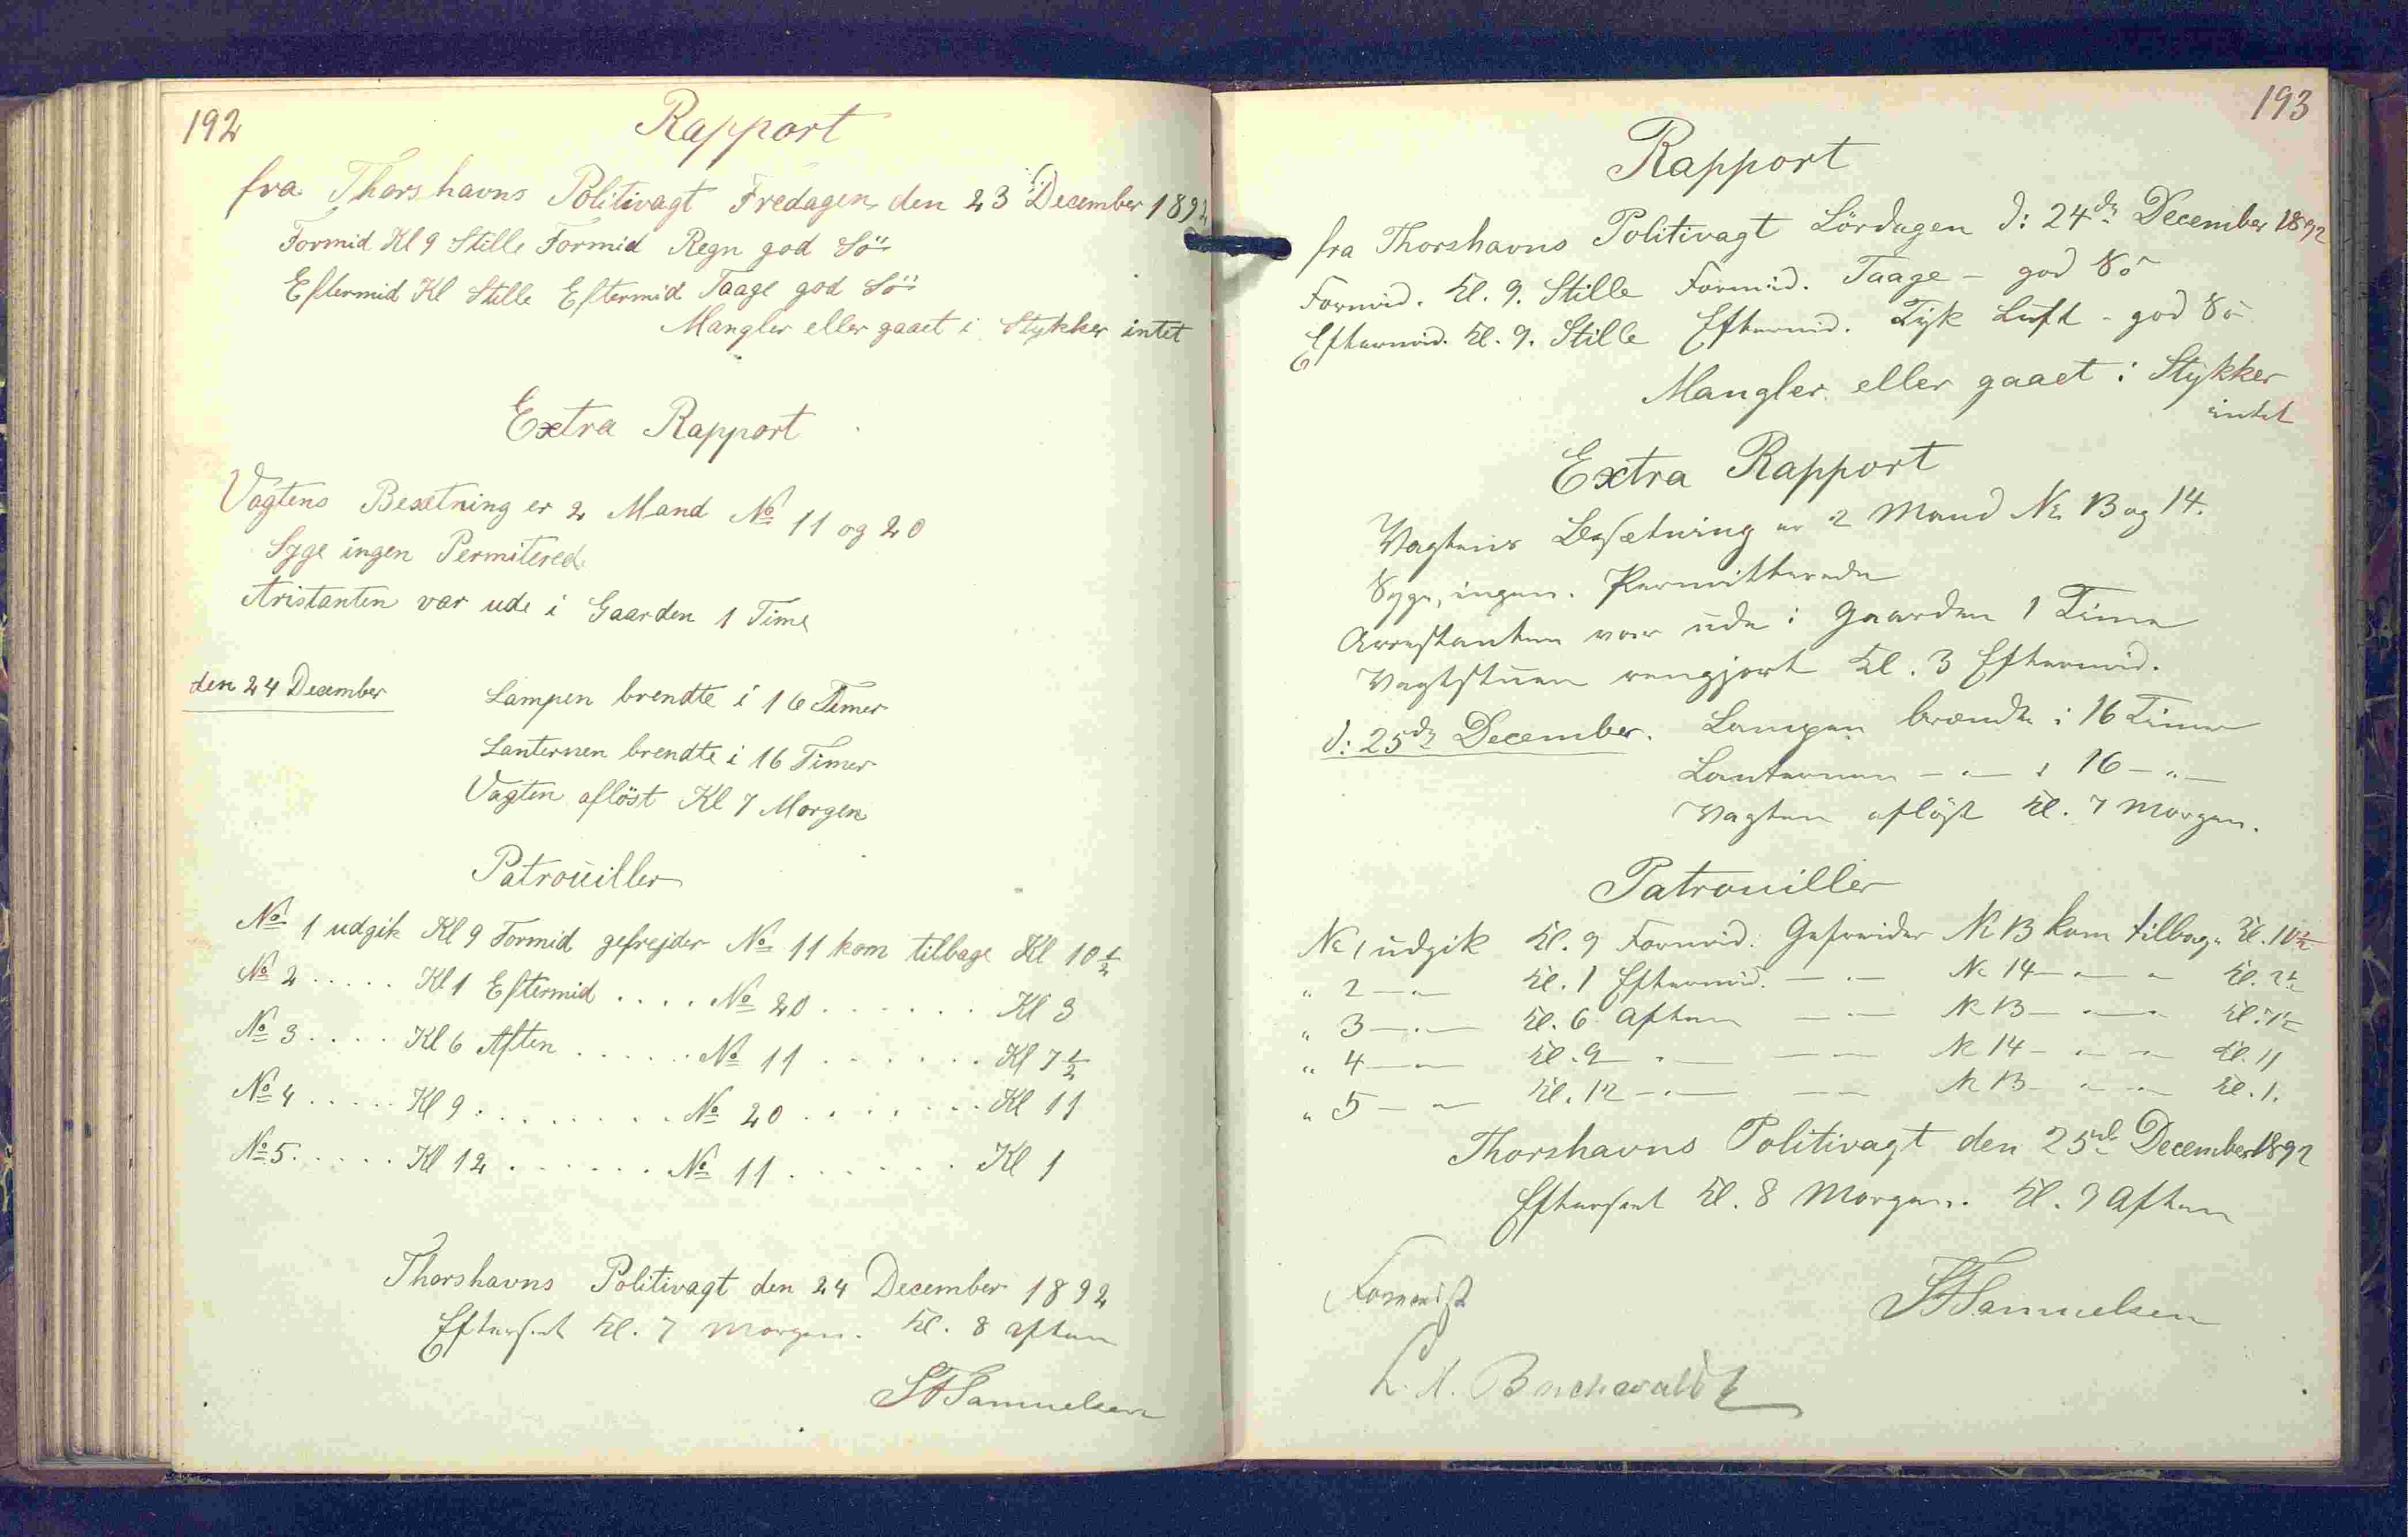 192
Rapport
fra Thorshavns Politivagt Fredagen den 23 December 1892
Formid Kl 9 Stille Formid Regn god Sö
Eftermid Kl Stille Eftermid Taage god Sö
Mangler eller gaaet i Stykker intet
Extra Rapport
Vagtens Besetning er 2 Mand No 11 og 20
Syge ingen Permitered
Aristanten var ude i Gaarden 1 Time
den 24 December Lampen brendte i 16 Timer
Lanternen brendte i 16 Timer
Vagten aflöst Kl 7 Morgen
Patrouiller
No 1 udgik Kl 9 Formid gefrejder No 11 kom tilbage Kl 10 1/2
No 2 ..... Kl 1 Eftermid .... No 20 ...... Kl 3
No 3 .... Kl 6 Aften ...... No 11 ....... Kl 7 1/2
No 4 ..... Kl 9 ........ No 20 ....... Kl 11
No 5 ..... Kl 12 ...... No 11 ...... Kl 1
Thorshavns Politivagt den 24 December 1892
Efterseet Kl. 7 Morgen. Kl. 8 Aften
Samuelsen
193
Rapport
fra Thorshavns Politivagt Lördagen d: 24de December 1892
Formid. Kl. 9. Stille Formid. Taage - god Sö
Eftermid. Kl. 9. Stille Eftermid. Tyk Luft - god Sö
Mangler eller gaaet i Stykker
intet
Extra Rapport
Vagtens Besætning er 2 Mand No 13 og 14.
Syge, ingen. Permitterede
Arrestanten var ude i Gaarden 1 Time
Vagtstuen rengjort Kl. 3 Eftermid.
d: 25de December. Lampen brændte i 16 Timer
Lanternen — " — i 16 — " —
Vagten aflöst Kl. 7 Morgen.
Patrouiller
No 1 udgik Kl. 9 Formid. Gefreider No 13 kom tilbage Kl. 10 1/2
" 2 — " — Kl. 1 Eftermid. — " — No 14 — " — " — Kl. 2 1/2
" 3 — " — Kl. 6 Aften — " — No 13 — " — " — Kl. 7 1/2
" 4 — " — Kl. 9 — " — — " — No 14 — " — " — Kl. 11
" 5 — " — Kl. 12 — " — — " — No 13 — " — " — Kl. 1.
Thorshavns Politivagt den 25de December 1892
Efterseet Kl. 8 Morgen. Kl. 9 Aften
Samuelsen